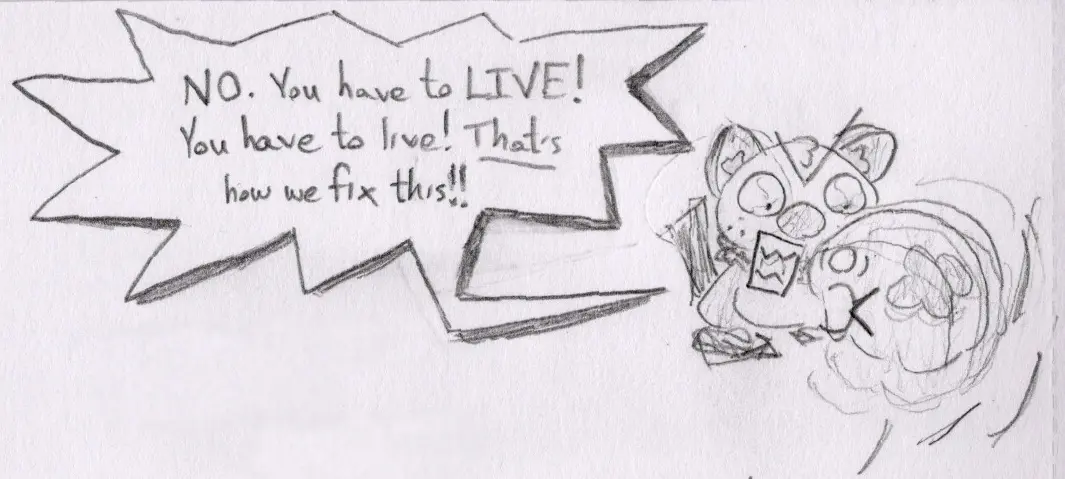 NO. You have to LIVE!
You have to live! That's
how we fix this!!